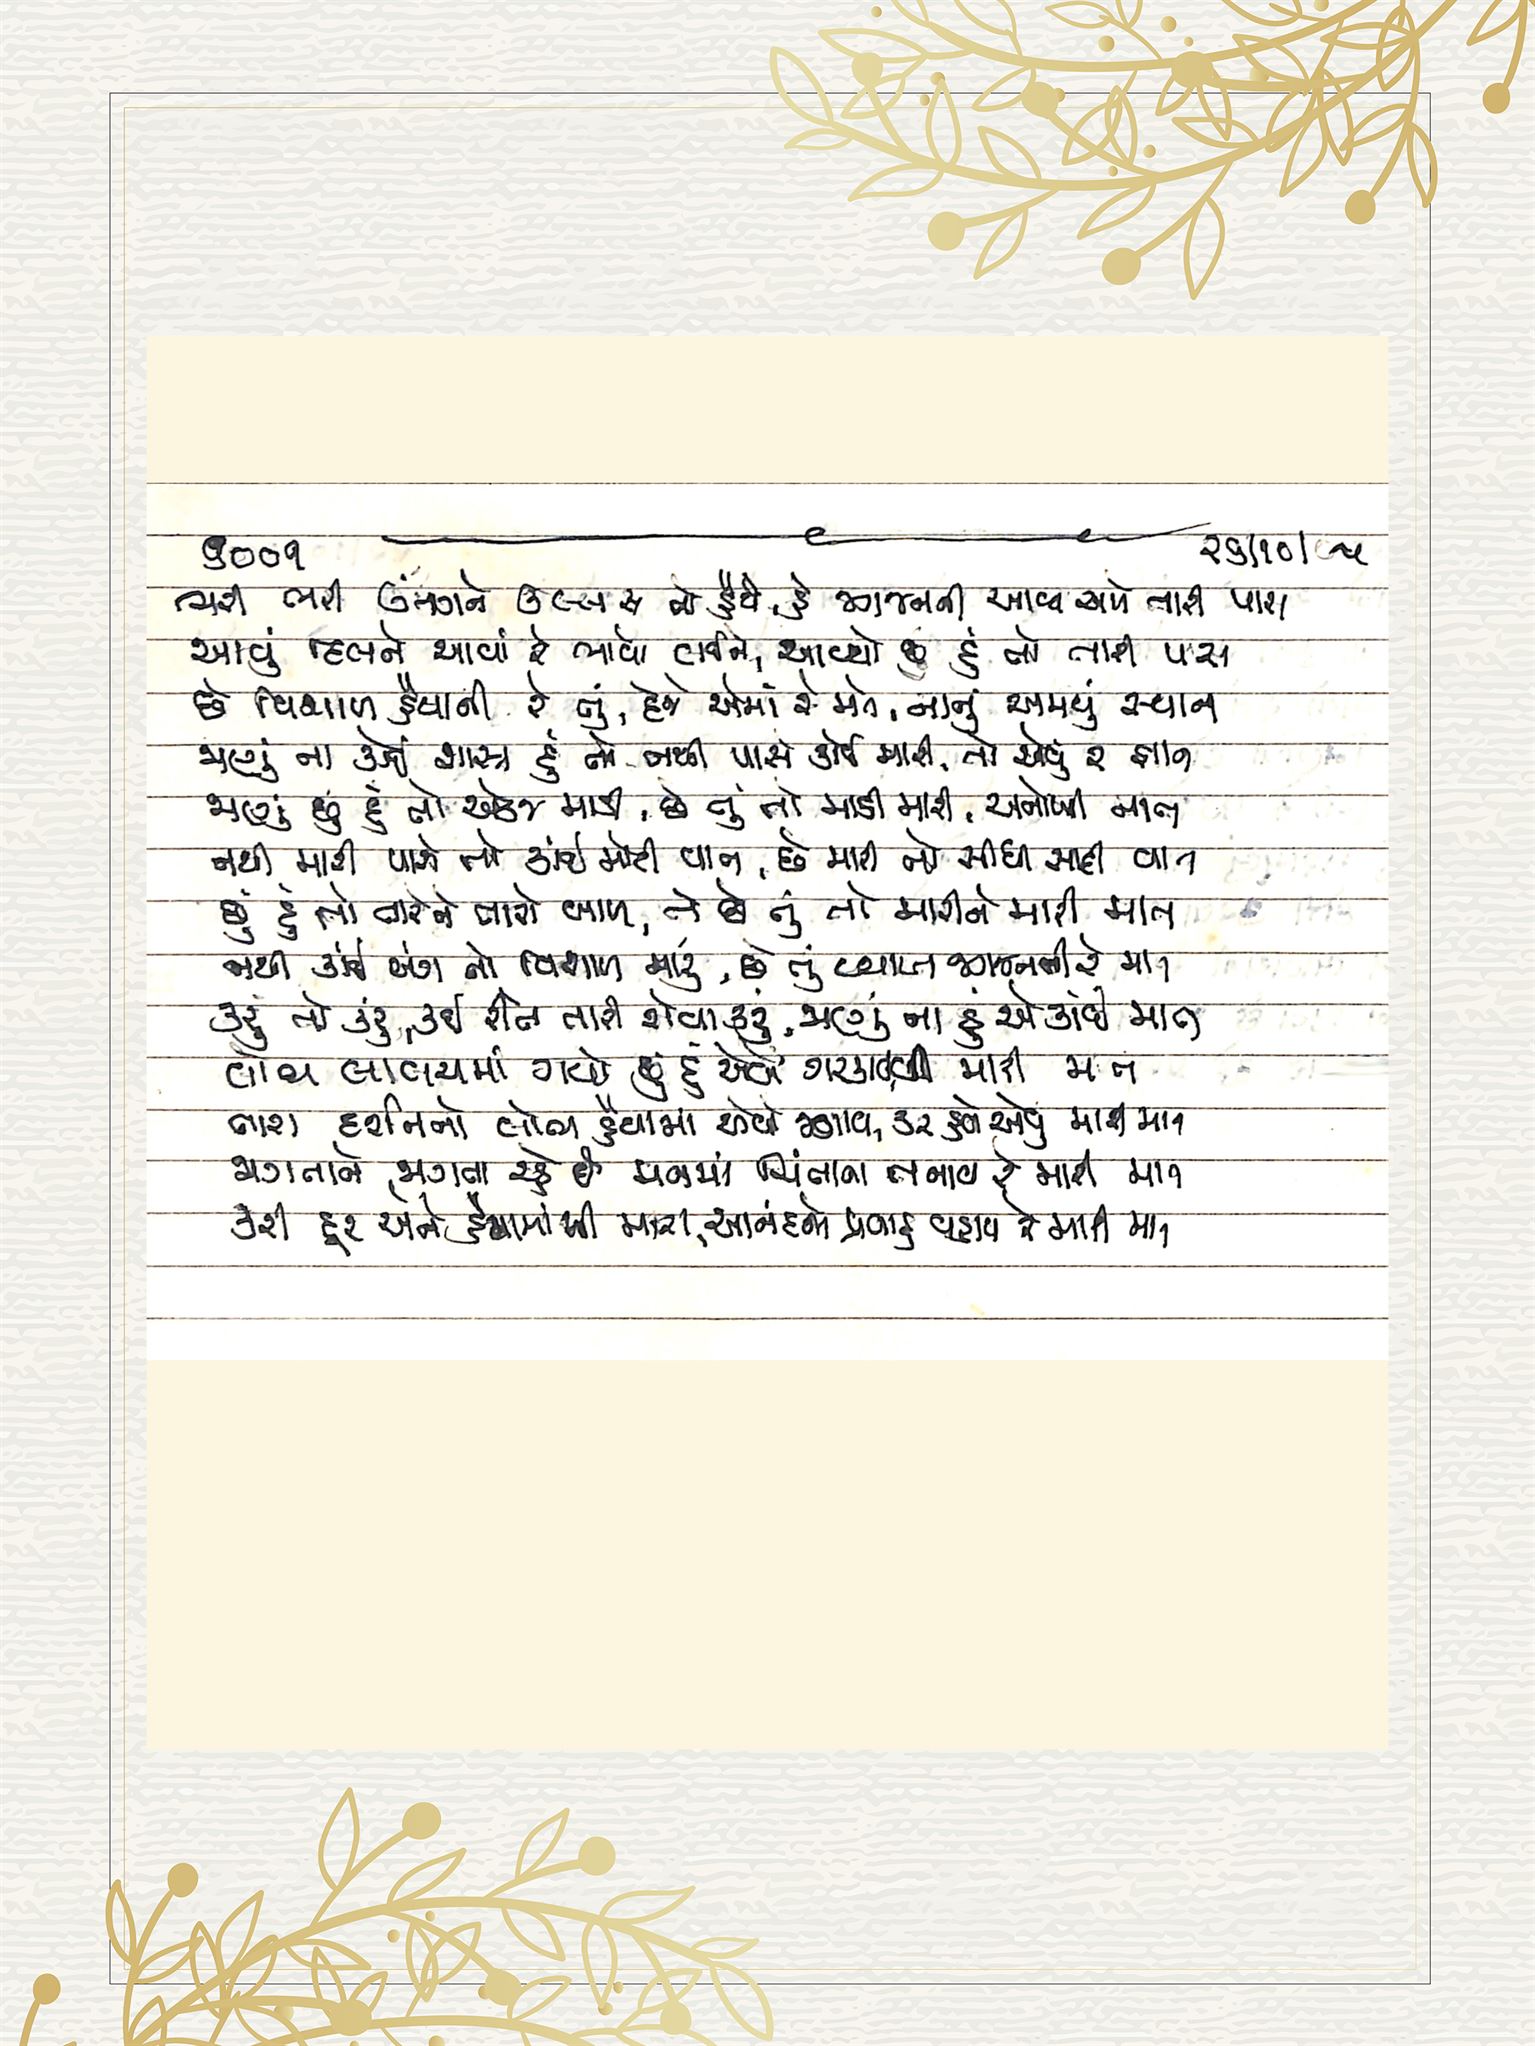 ૬૦૦૧
૨૬/૧૦/
ભરી ભરી ઉમંગને ઉલ્લાસ તો હૈયે, હે જગજનની આવ્યા અમે તારી પાસ
આવું દિલને આવાં રે ભાવો લઈને, આવ્યો છું હું તો તારી પાસ
છે વિશાળ હૈયાની રે તું, દેજે એમાં રે મને, નાનું અમથું સ્થાન
ભણ્યું ના કોઈ શાસ્ત્ર હું તો નથી પાસે કોઈ મારી, તો એવું રે જ્ઞાન
જાણું છું હું તો એકજ માડી, છે તું તો માડી મારી, અનોખી માત
નથી મારી પાસે તો કાંઈ મોટી વાત, છે મારી તો સીધી સાદી વાત
છું હું તો તારોને તારો બાળ, તો છે તું તો મારીને મારી માત
નથી કાંઈ અંગ તો વિશાળ મારું, છે તું વ્યાપ્ત જગજનની રે માત
કરું તો કરું, કઈ રીતે તારી સેવા કરું, જાણું ના હું એ કાંઈ માત
લોભ લાલચમાં ગયો છું હું એવો ગરકાવ મારી માત
તારા દર્શનનો લોભ હૈયામાં એવો જગાવ, કર હવે એવું મારી માત
જાગતાને જાગતા રહે છે મનમાં ચિંતાના તનાવ રે મારી માત
કરી દૂર એને હૈયામાંથી મારા, આનંદનો પ્રવાહ વહાવ રે મારી માત